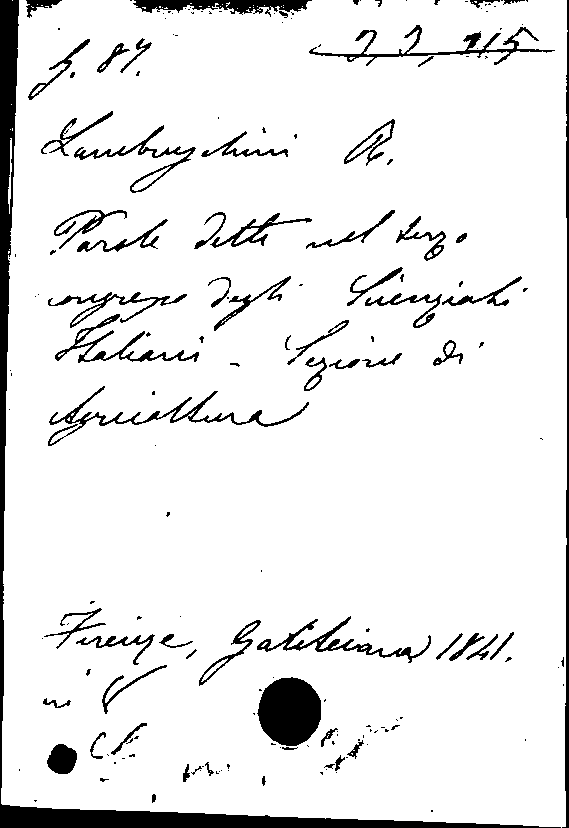 G. 87.
3, 3, 115
Lambruschini R.
Parole dette nel terzo
congresso degli Scienziati
Italiani - Sezione di
Agricoltura
Firenze, Galileiana, 1841.
in 8